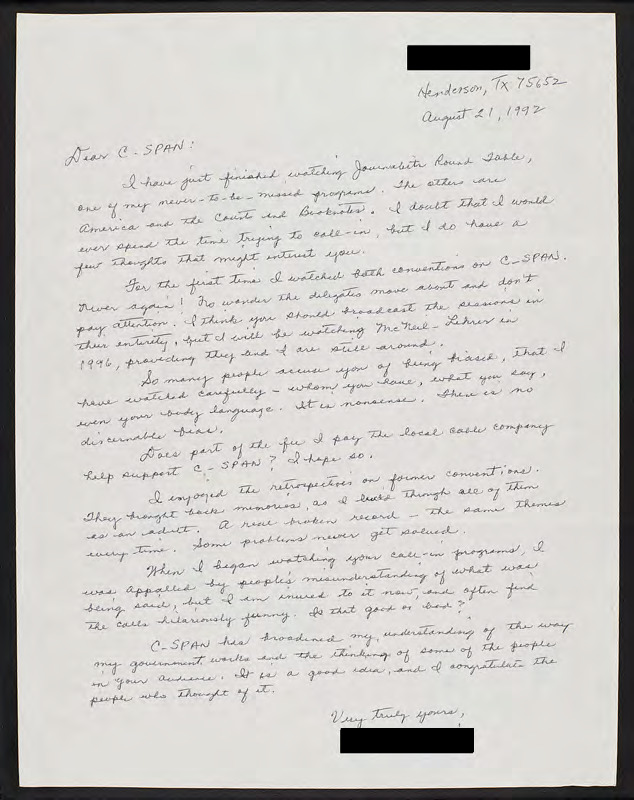 Henderson, Tx 75652
August 21, 1992
Dear C-SPAN:
I have just finished watching Journalists Round Table,
one of my never-to-be-missed programs. The others are
America and the Court and Booknotes. I doubt that I would
ever spend the time trying to call-in, but I do have a
few thoughts that might interest you.
For the first time I watched both conventions on C-SPAN.
Never again! No wonder the delegates move about and don't
pay attention. I think you should broadcast the sessions in
their entirety, but I will be watching McNeil-Lehrer in
1996, providing they and I are still around.
So many people accuse you of being biased, that I
have watched carefully - whom you have, what you say,
even your body language. It is nonsense. There is no
discernable bias.
Does part of the fee I pay the local cable company
help support C-SPAN? I hope so.
I enjoyed the retrospectives on former conventions.
They brought back memories, as I lived through all of them
as an adult. A real broken record - the same themes
every time. Some problems never get solved.
When I began watching your call-in programs, I
was appalled by people's misunderstanding of what was
being said, but I am inured to it now, and often find
the calls hilariously funny. Is that good or bad?
C-SPAN has broadened my understanding of the way
my government works and the thinking of some of the people
in your audience. It is a good idea, and I congratulate the
people who thought of it.
Very truly yours,